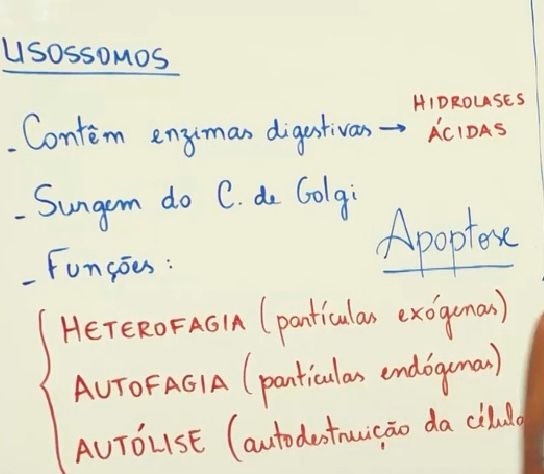 LISOSSOMOS
- Contêm enzimas digestivas → HIDROLASES
ÁCIDAS
- Surgem do C. de Golgi
Apoptose
- Funções:
HETEROFAGIA (partículas exógenas)
AUTOFAGIA (partículas endógenas)
AUTÓLISE (autodestruição da célula